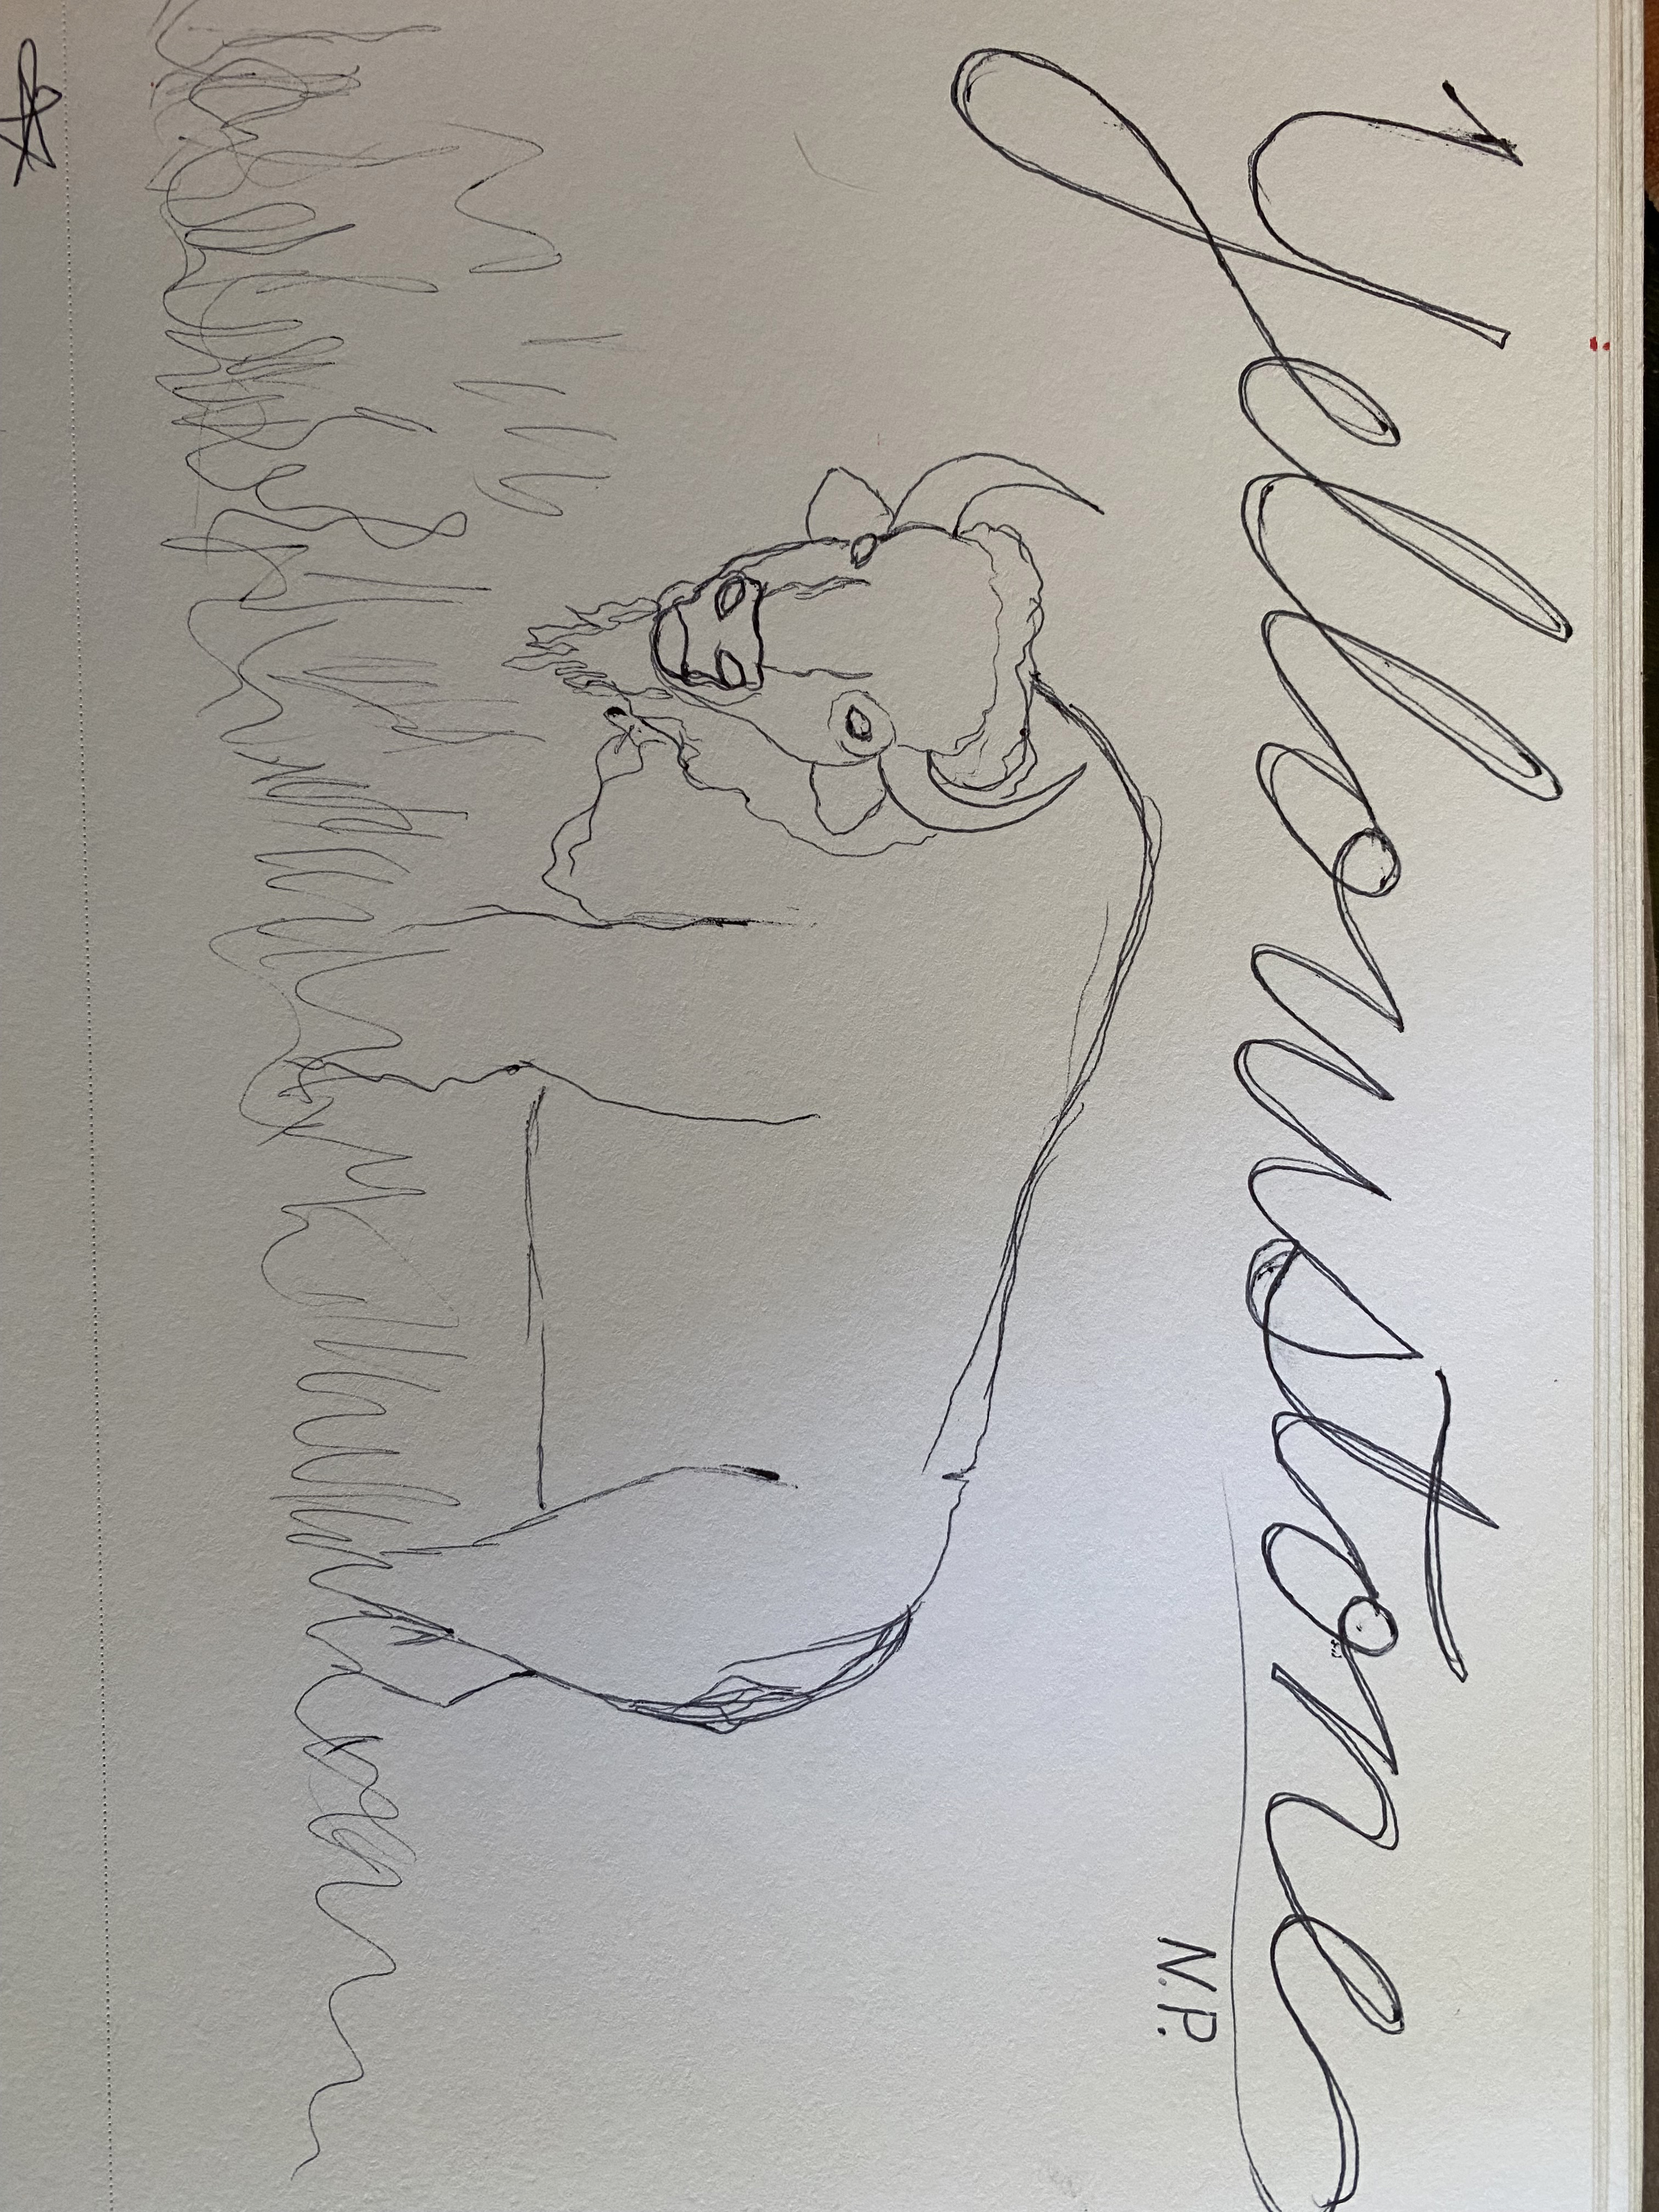 Yellowstone
N.P.